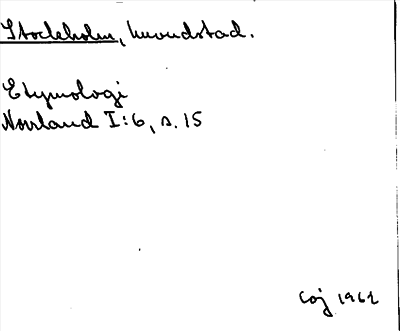 Stockholm, huvudstad.
Etymologi
Norrland I:6, s. 15
Coj 1962